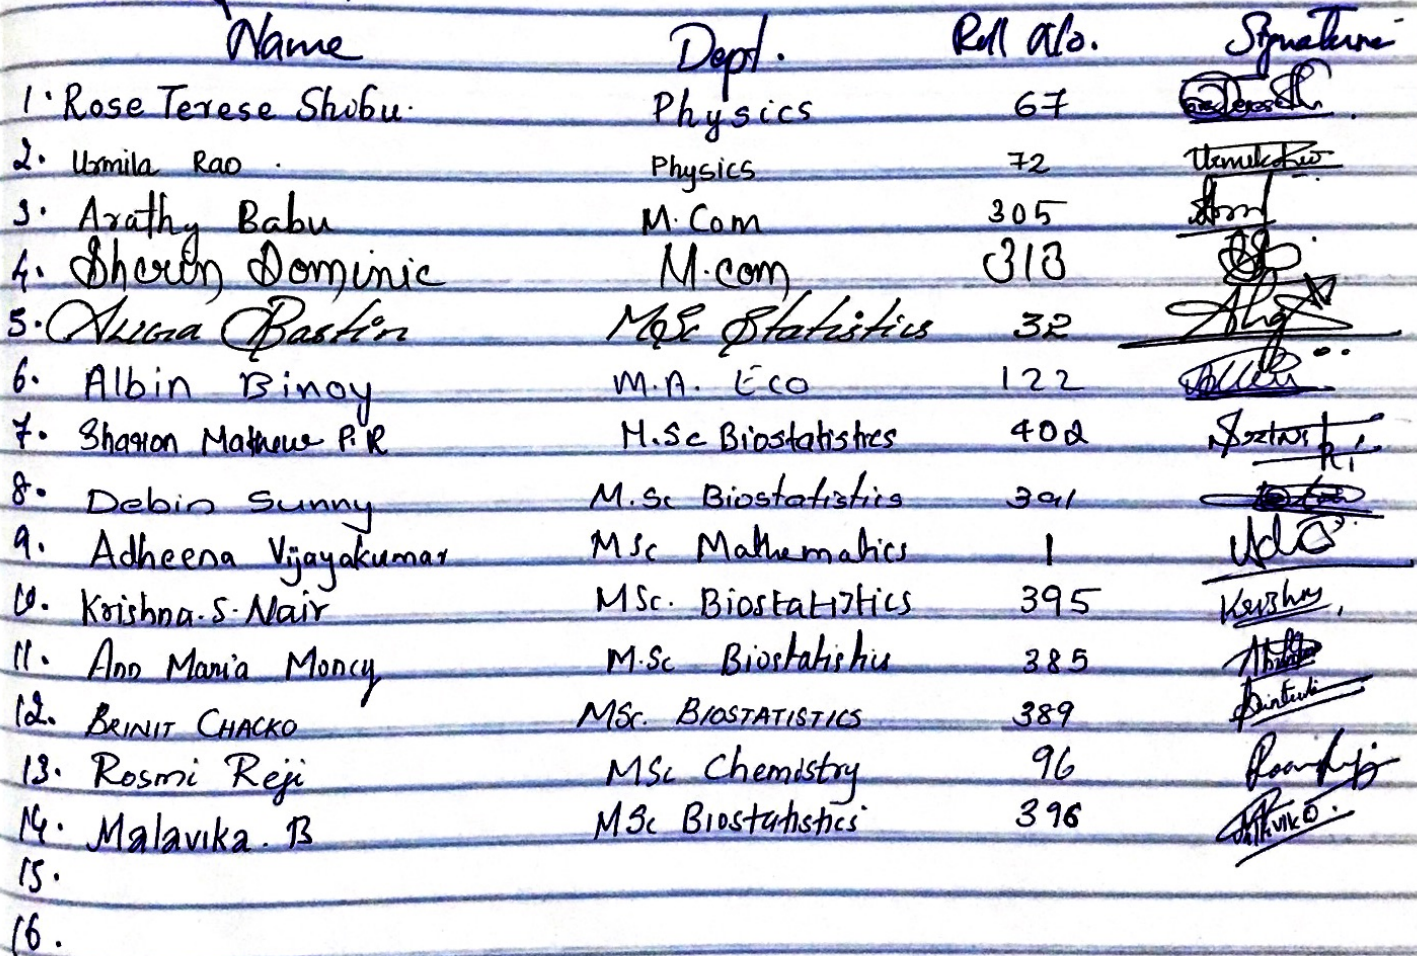 Name Dept. Roll No. Signature
1. Rose Terese Shobu. Physics 67
2. Urmila Rao. Physics 72
3. Arathy Babu M.Com 305
4. Sharon Dominic M.com 313
5. Bastin MSc Statistics 32
6. Albin Binoy M.A. Eco 122
7. Sharon Mathew P.R M.Sc Biostatistics 402
8. Debin Sunny M.Sc Biostatistics 391
9. Adheena Vijayakumar MSc Mathematics 1
10. Krishna.S.Nair MSc. Biostatistics 395 Krishna,
11. Ann Maria Moncy M.Sc Biostatistics 385
12. BRINIT CHACKO MSc. BIOSTATISTICS 389
13. Rosmi Reji MSc Chemistry 96
14. Malavika.B MSc Biostatistics 396
15.
16.